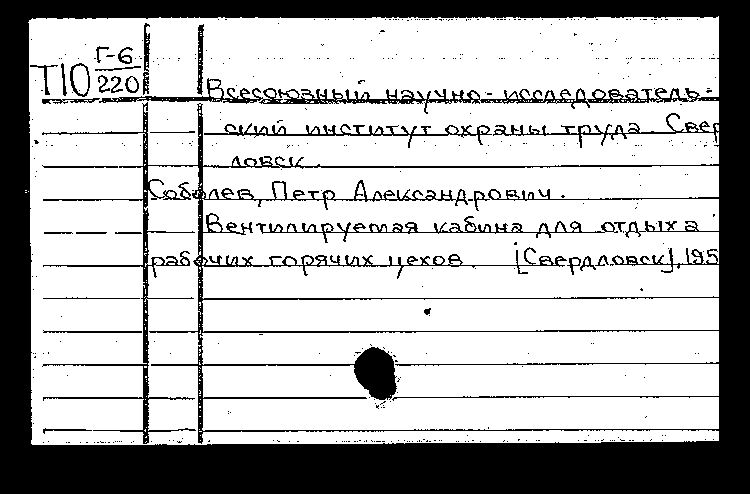 Г-6
Т10 220
Всесоюзный научно-исследователь-
ский институт охраны труда. Свер
ловск.
Соболев, Петр Александрович.
Вентилируемая кабина для отдыха
рабочих горячих цехов. [Свердловск], 195